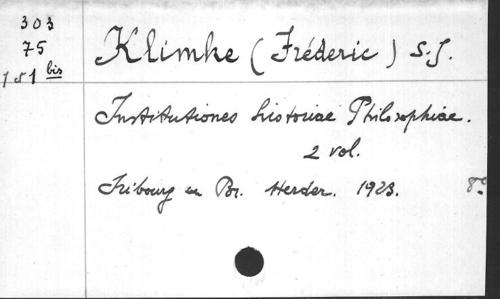 303
75
151 bis
Klimke (Fréderic) S.J.
Institutiones historiae Philosophiae.
2 vol.
Fribourg en Br. Herder. 1923. 8°